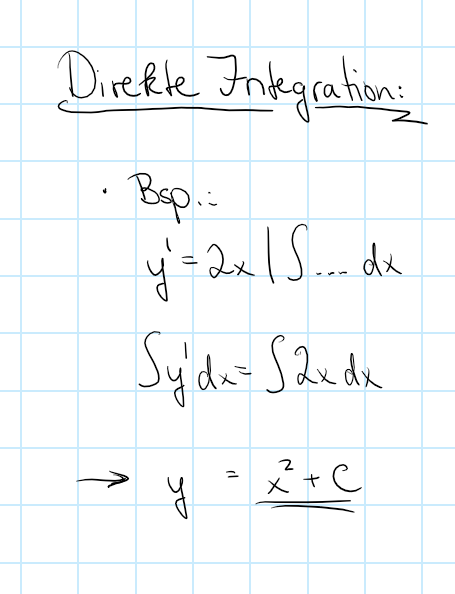 Direkte Integration:
· Bsp.:
y' = 2x | ∫ .... dx
∫y' dx = ∫ 2x dx
→ y = x² + C